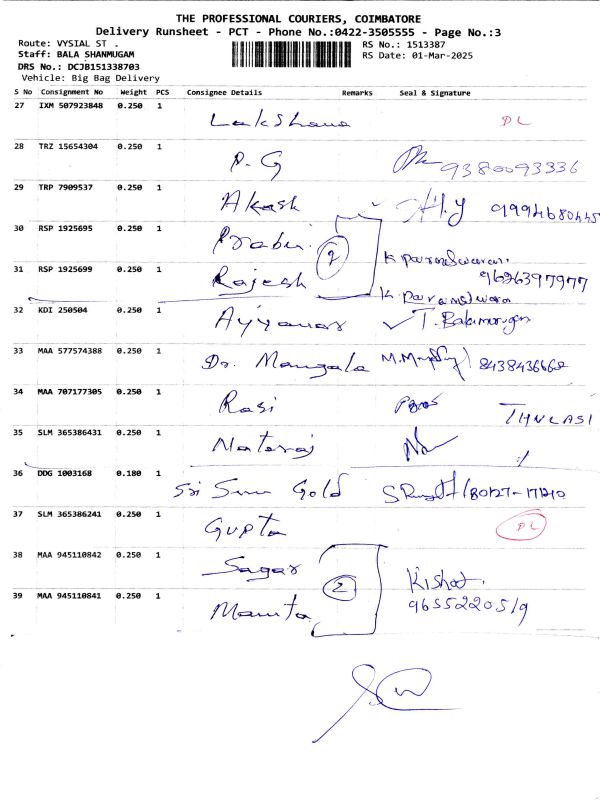 THE PROFESSIONAL COURIERS, COIMBATORE
Delivery Runsheet - PCT - Phone No.:0422-3505555 - Page No.:3
Route: VYSIAL ST . RS No.: 1513387
Staff: BALA SHANMUGAM RS Date: 01-Mar-2025
DRS No.: DCJB151338703
Vehicle: Big Bag Delivery
S No Consignment No Weight PCS Consignee Details Remarks Seal & Signature
27 IXM 507923848 0.250 1 Lakshana DL
28 TRZ 15654304 0.250 1 P. G 9380093336
29 TRP 7909537 0.250 1 Akash
30 RSP 1925695 0.250 1 Prabu. K Parameswaran.
9626397977
31 RSP 1925699 0.250 1 Rajesh
32 KDI 250504 0.250 1 Ayyanar T. Balamurugan
33 MAA 577574388 0.250 1 Dr. Mangala
34 MAA 707177305 0.250 1 Rasi
35 SLM 365386431 0.250 1 Nataraj
36 DDG 1003168 0.180 1 Sri Sun Gold
37 SLM 365386241 0.250 1 Gupta DL
38 MAA 945110842 0.250 1 Sagar 2 Kishor.
39 MAA 945110841 0.250 1 Mamta 9655220519